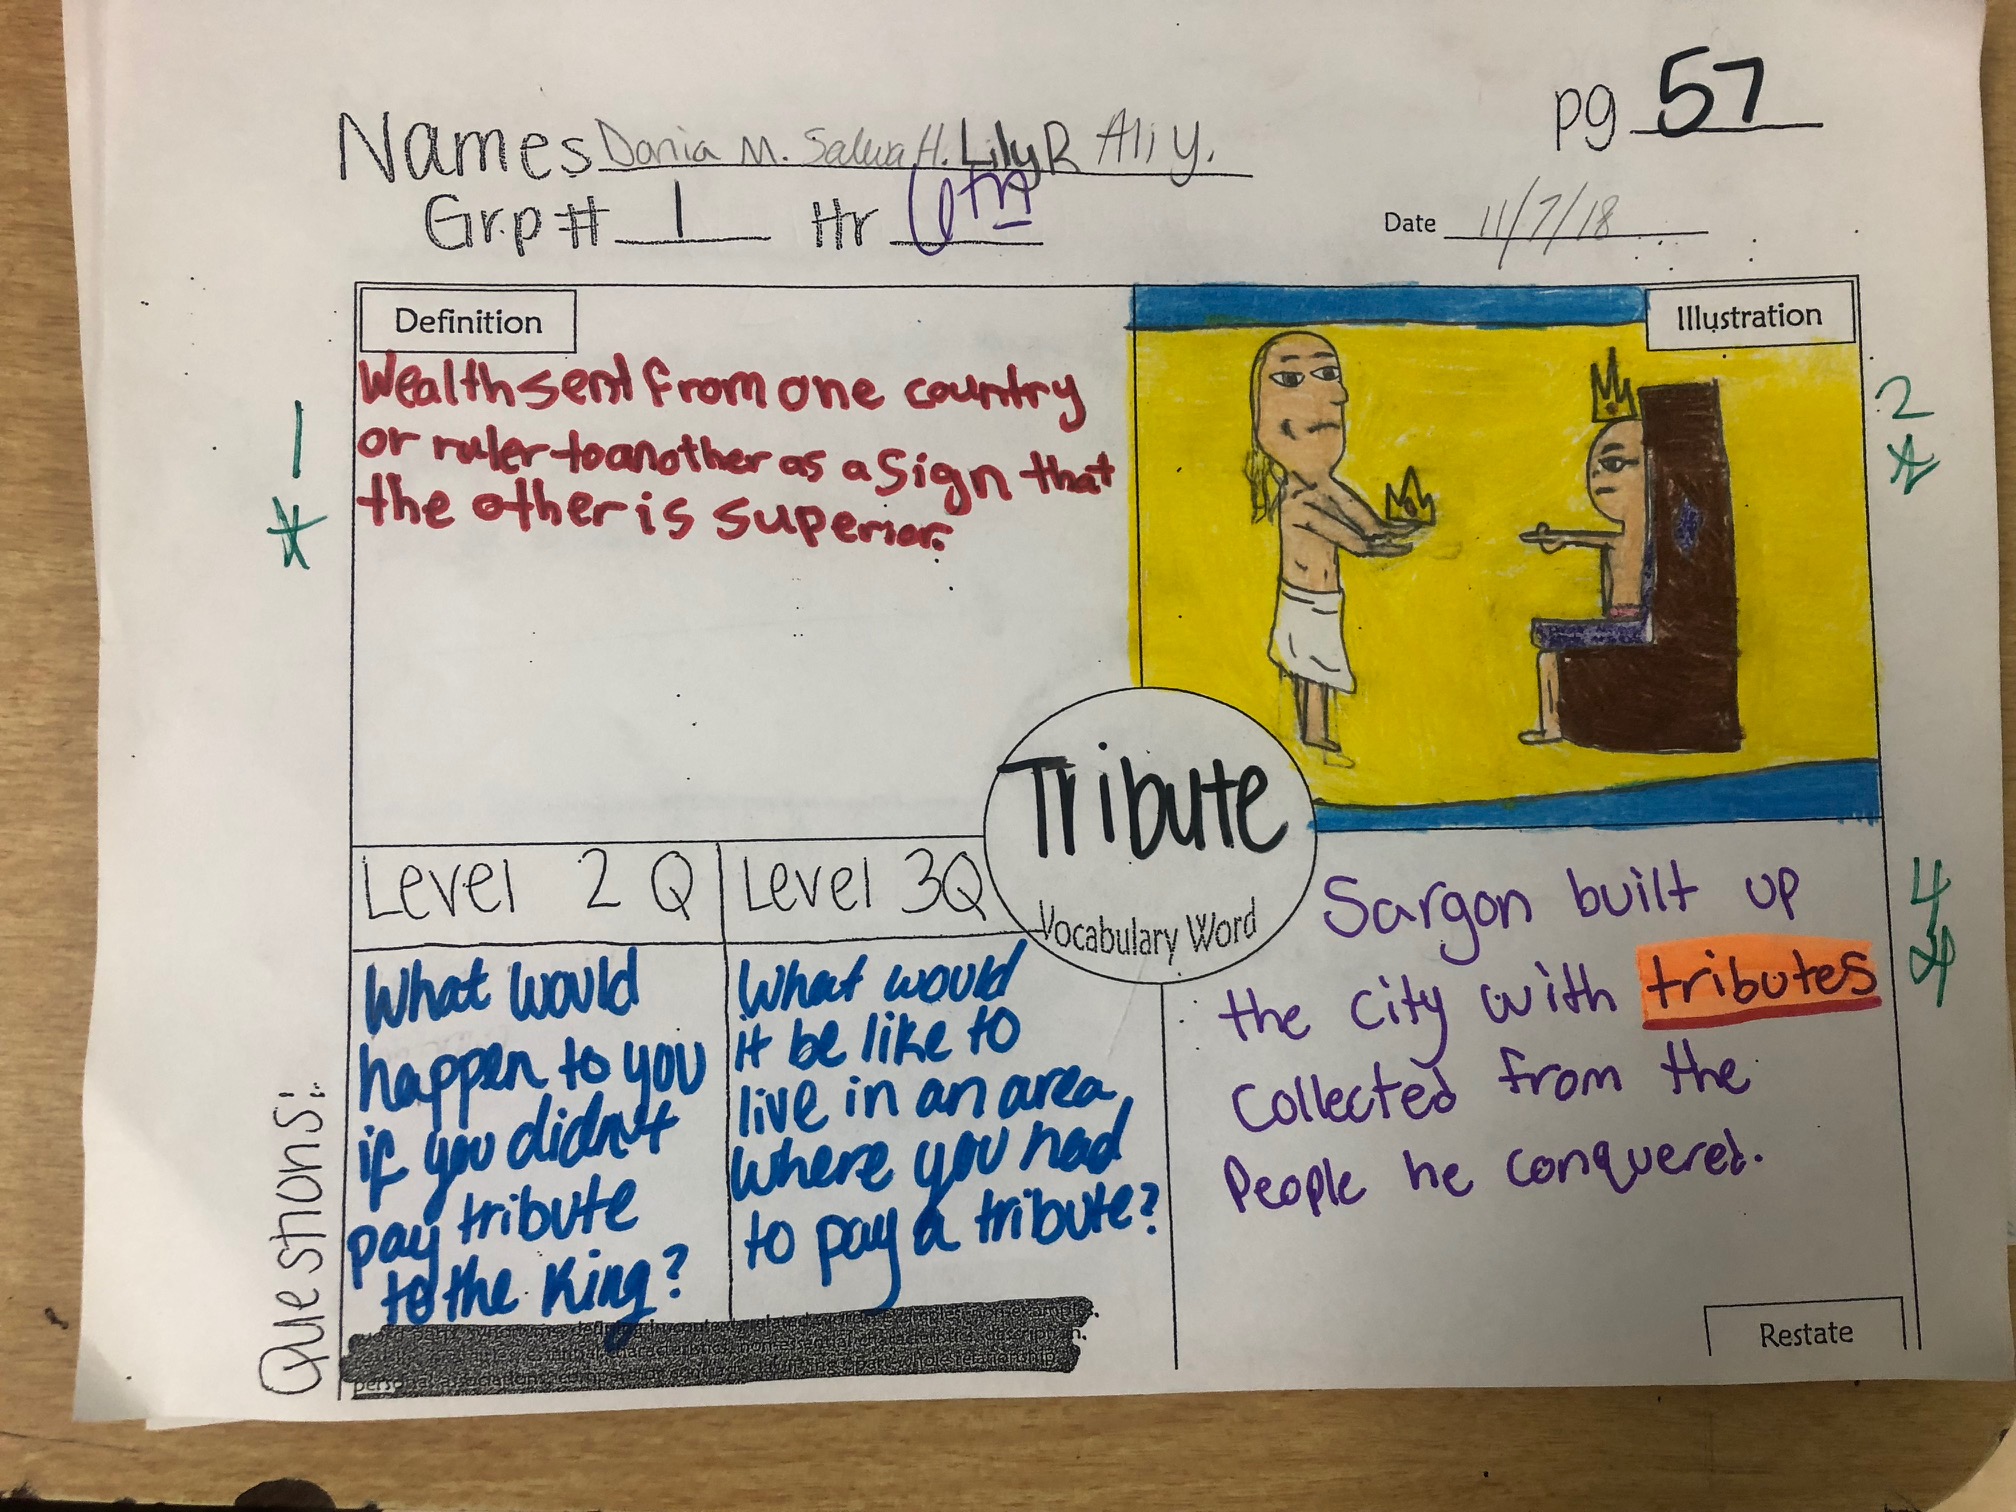 pg 57
Names Dania M. Salwa H. Lily R Ali Y.
Grp # 1 Hr 6th
Date 11/7/18
Definition
Wealth sent from one country
or ruler to another as a sign that
the other is superior.
1
Illustration
2
Tribute
Vocabulary Word
Questions:
Level 2 Q
What would
happen to you
if you didn't
pay tribute
to the King?
Level 3Q
What would
it be like to
live in an area
where you had
to pay a tribute?
Sargon built up
the city with tributes
Collected from the
People he conquered.
4
Restate